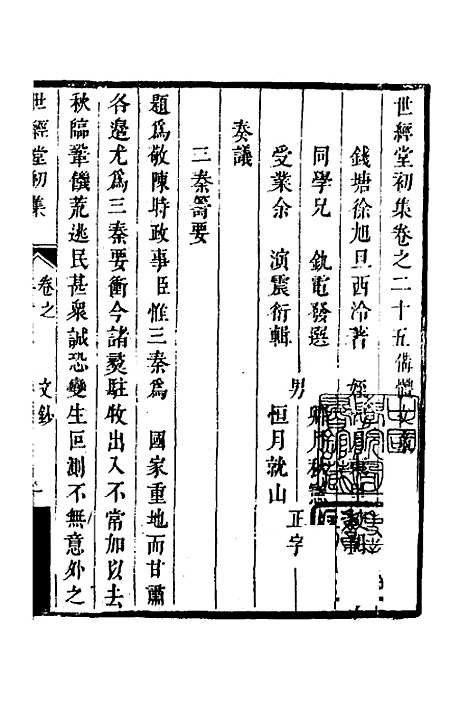 世經堂初集卷之二十五備體文
錢塘徐旭旦西泠著 姪
同學兄 釚電發選
受業余 演震衍輯 男 恒月就山 正字
奏議
三秦籌要
題爲敬陳時政事臣惟三秦爲 國家重地而甘肅
各邊尤爲三秦要衝今諸彞駐牧出入不常加以去
秋臨鞏饑荒逃民甚衆誠恐變生叵測不無意外之
世經堂初集 卷之 文鈔